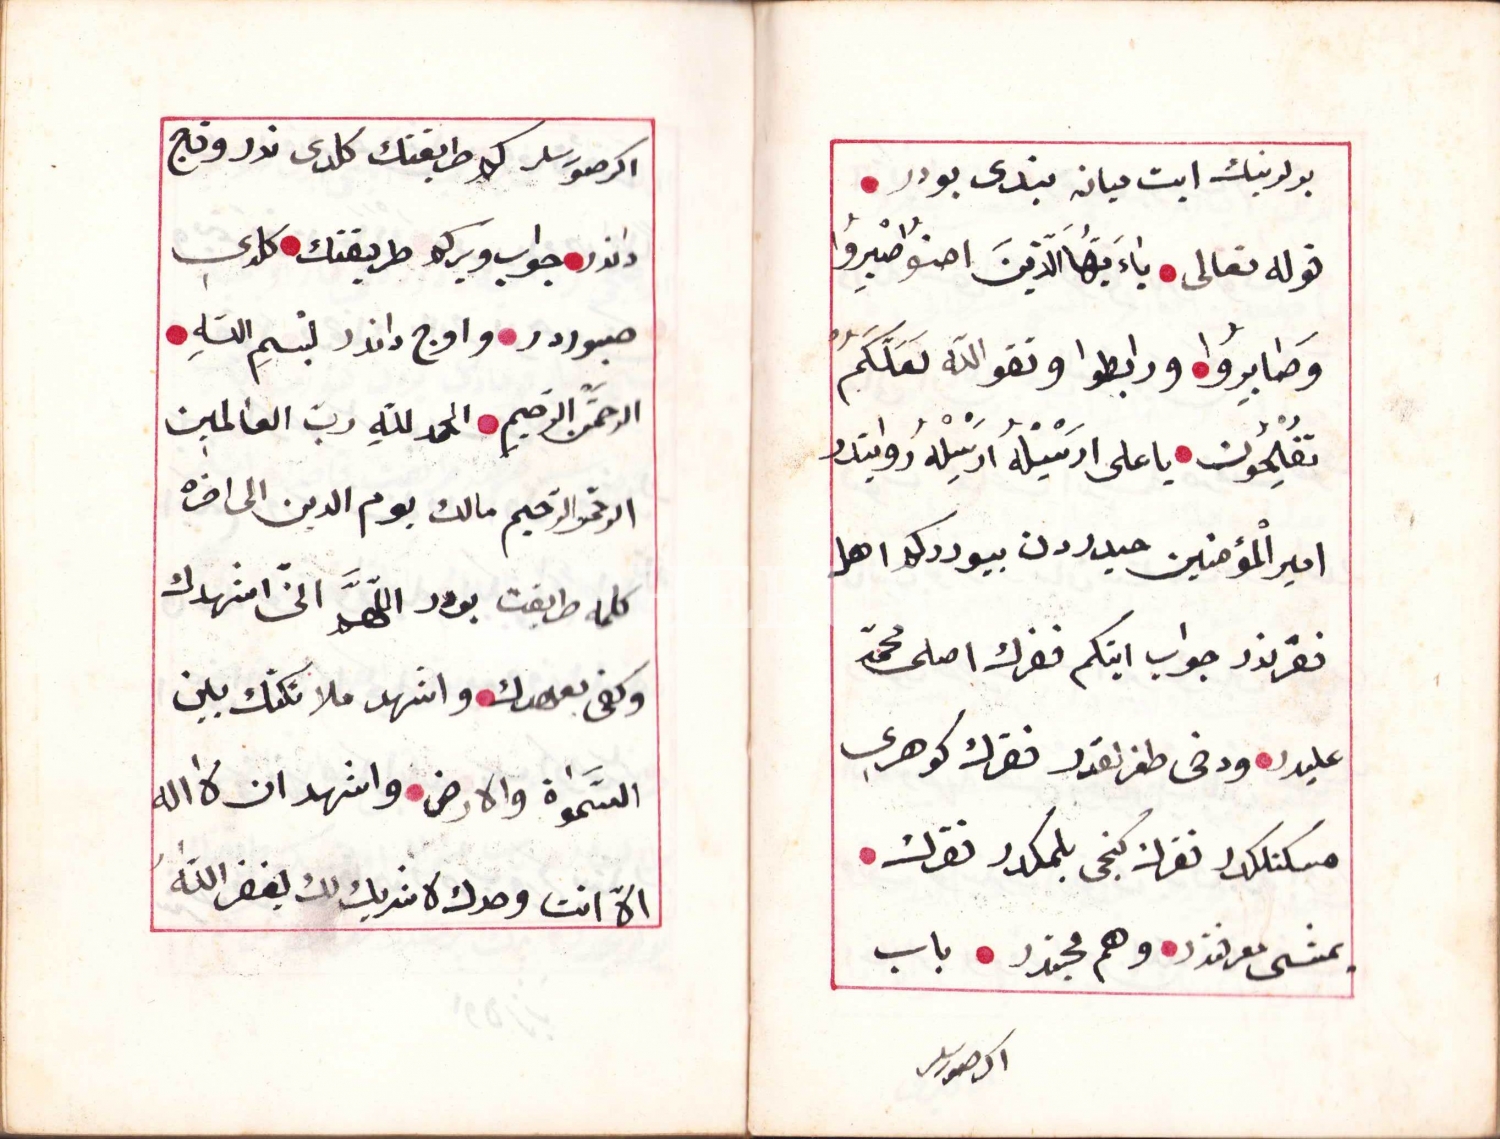 بولرينك ايت ميانه بندى بودر
قوله تعالى ياءَيُّهَا الَّذينَ امنوُا صْبِروُا
وَصَابِروُا ورابطوا وتقو اللّه لَعَلَّكمْ
تفْلِحُونَ ياعلى ارسْيلْهُ ارسْيلْهُ روايتدر
اميرالْمؤمنين حيدردن بيورركه اهل
فقرندر جواب ايتكم فقرك اصلى محمّد
عليدر ودخى فقرك كوهرى
مسكنلكدر فقرك كنجى بلمكدر فقرك
يمشى معرفتدر وهم محبتدر باب
اكر صورسلر
اكر صورسلر كه طريقتك كلدى ندر وقاج
داندر جواب ويركه طريقتك كلدى
صبوردر واوج داندر بْسِمِ اللّهِ
الرحمَنِ الرّحيمِ الحمد للّهِ ربّ العالمين
الرحمن الرّحيم مالك يوم الدين الى اخره
كلمه طريقت بودر اللّهمَّ انّى اشهدك
وكفى بعهدك واشهد ملائكتك بين
السَّموٰاة والارض واشهد ان لا اله
الاّ انت وحدك لا شريك لك يغفر اللّه